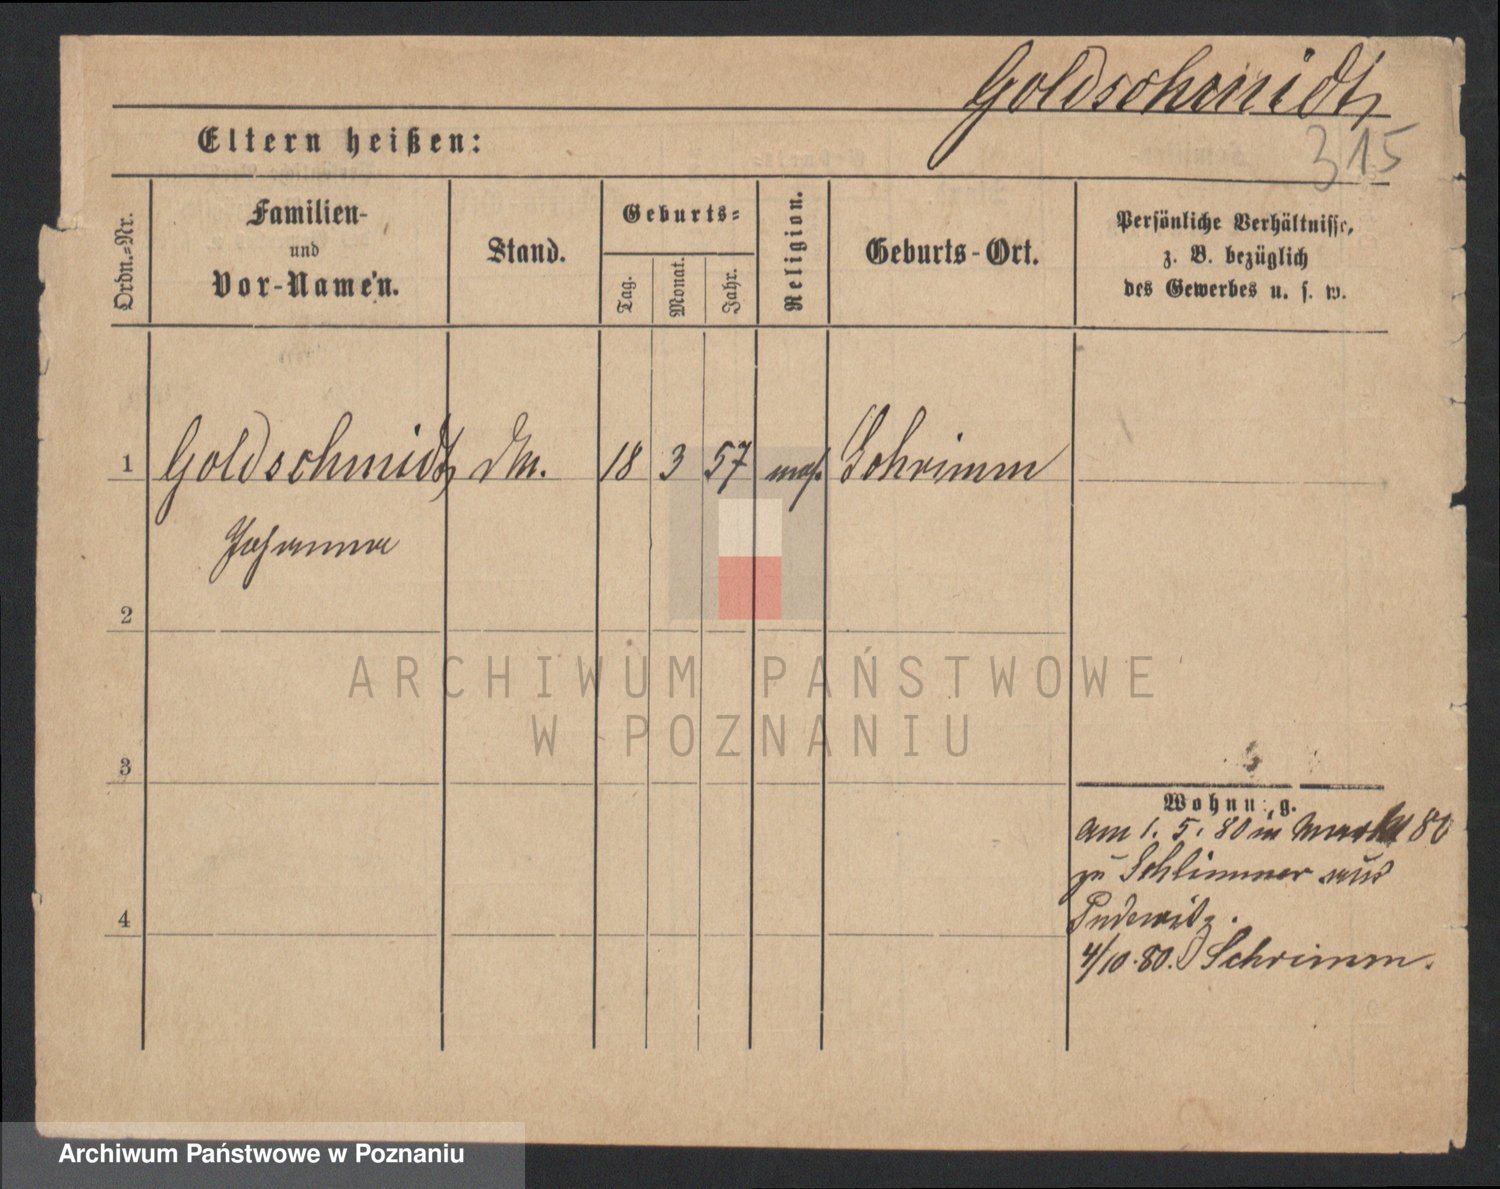 Goldschmidt
315
Eltern heißen:
Ordn.=Nr.
Familien-
und
Vor-Namen.
Stand.
Geburts=
Tag.
Monat.
Jahr.
Religion.
Geburts-Ort.
Persönliche Verhältnisse,
z. B. bezüglich
des Gewerbes u. s. w.
1 Goldschmidt 18 3 57 mos. Schrimm
Johanna
2
ARCHIWUM PAŃSTWOWE
W POZNANIU
3
Wohnung.
am 1. 5. 80 in Markt 80
zu Schlimmer aus
Pudewitz.
4
4/10.80. Schrimm.
Archiwum Państwowe w Poznaniu